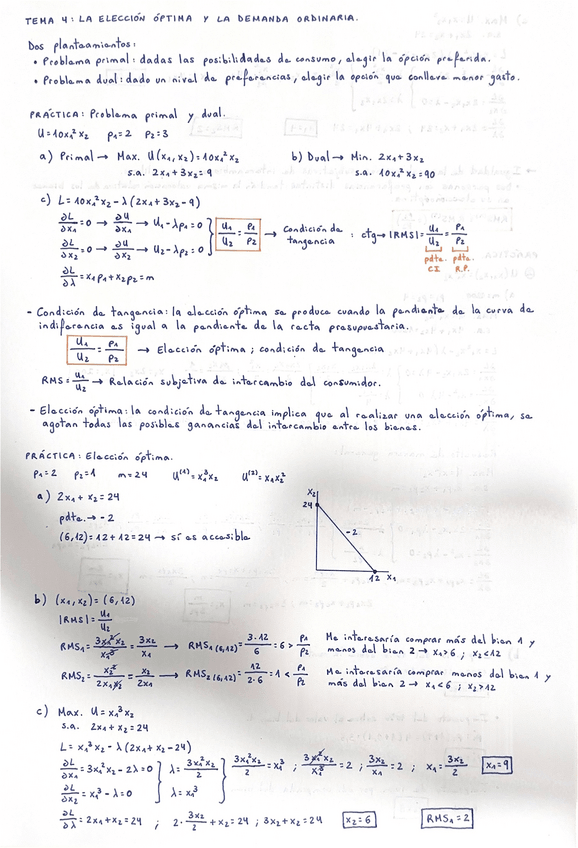 TEMA 4: LA ELECCIÓN ÓPTIMA Y LA DEMANDA ORDINARIA.
Dos planteamientos:
• Problema primal: dadas las posibilidades de consumo, elegir la opción preferida.
• Problema dual: dado un nivel de preferencias, elegir la opción que conlleve menor gasto.
PRÁCTICA: Problema primal y dual.
U=10x₁²x₂ p₁=2 p₂=3
a) Primal → Max. U(x₁,x₂)=10x₁²x₂ b) Dual → Min. 2x₁+3x₂
s.a. 2x₁+3x₂=9 s.a. 10x₁²x₂=90
c) L=10x₁²x₂-λ(2x₁+3x₂-9)
∂L/∂x₁=0 → ∂U/∂x₁ → U₁-λp₁=0
∂L/∂x₂=0 → ∂U/∂x₂ → U₂-λp₂=0 } U₁/U₂=p₁/p₂ → Condición de tangencia : ctg → |RMS|=U₁/U₂=p₁/p₂
pdte. C.I. pdte. R.P.
∂L/∂λ=x₁p₁+x₂p₂=m
- Condición de tangencia: la elección óptima se produce cuando la pendiente de la curva de
indiferencia es igual a la pendiente de la recta presupuestaria.
U₁/U₂=p₁/p₂ → Elección óptima; condición de tangencia
RMS=U₁/U₂ → Relación subjetiva de intercambio del consumidor.
- Elección óptima: la condición de tangencia implica que al realizar una elección óptima, se
agotan todas las posibles ganancias del intercambio entre los bienes.
PRÁCTICA: Elección óptima.
p₁=2 p₂=1 m=24 U⁽¹⁾=x₁³x₂ U⁽²⁾=x₁x₂²
a) 2x₁+x₂=24
pdte. → -2
(6,12)=12+12=24 → sí es accesible
x₂
24
-2
12 x₁
b) (x₁,x₂)=(6,12)
|RMS|=U₁/U₂
RMS₁=3x₁²x₂/x₁³=3x₂/x₁ → RMS₁(6,12)=3·12/6=6>p₁/p₂ Me interesaría comprar más del bien 1 y
menos del bien 2 → x₁>6; x₂<12
RMS₂=x₂²/2x₁x₂=x₂/2x₁ → RMS₂(6,12)=12/2·6=1<p₁/p₂ Me interesaría comprar menos del bien 1 y
más del bien 2 → x₁<6; x₂>12
c) Max. U=x₁³x₂
s.a. 2x₁+x₂=24
L=x₁³x₂-λ(2x₁+x₂-24)
∂L/∂x₁=3x₁²x₂-2λ=0 } λ=3x₁²x₂/2 } 3x₁²x₂/2=x₁³ ; 3x₁²x₂/x₁³=2 ; 3x₂/x₁=2 ; x₁=3x₂/2 x₁=9
∂L/∂x₂=x₁³-λ=0 λ=x₁³
∂L/∂λ=2x₁+x₂=24 ; 2·3x₂/2+x₂=24 ; 3x₂+x₂=24 x₂=6 RMS₁=2